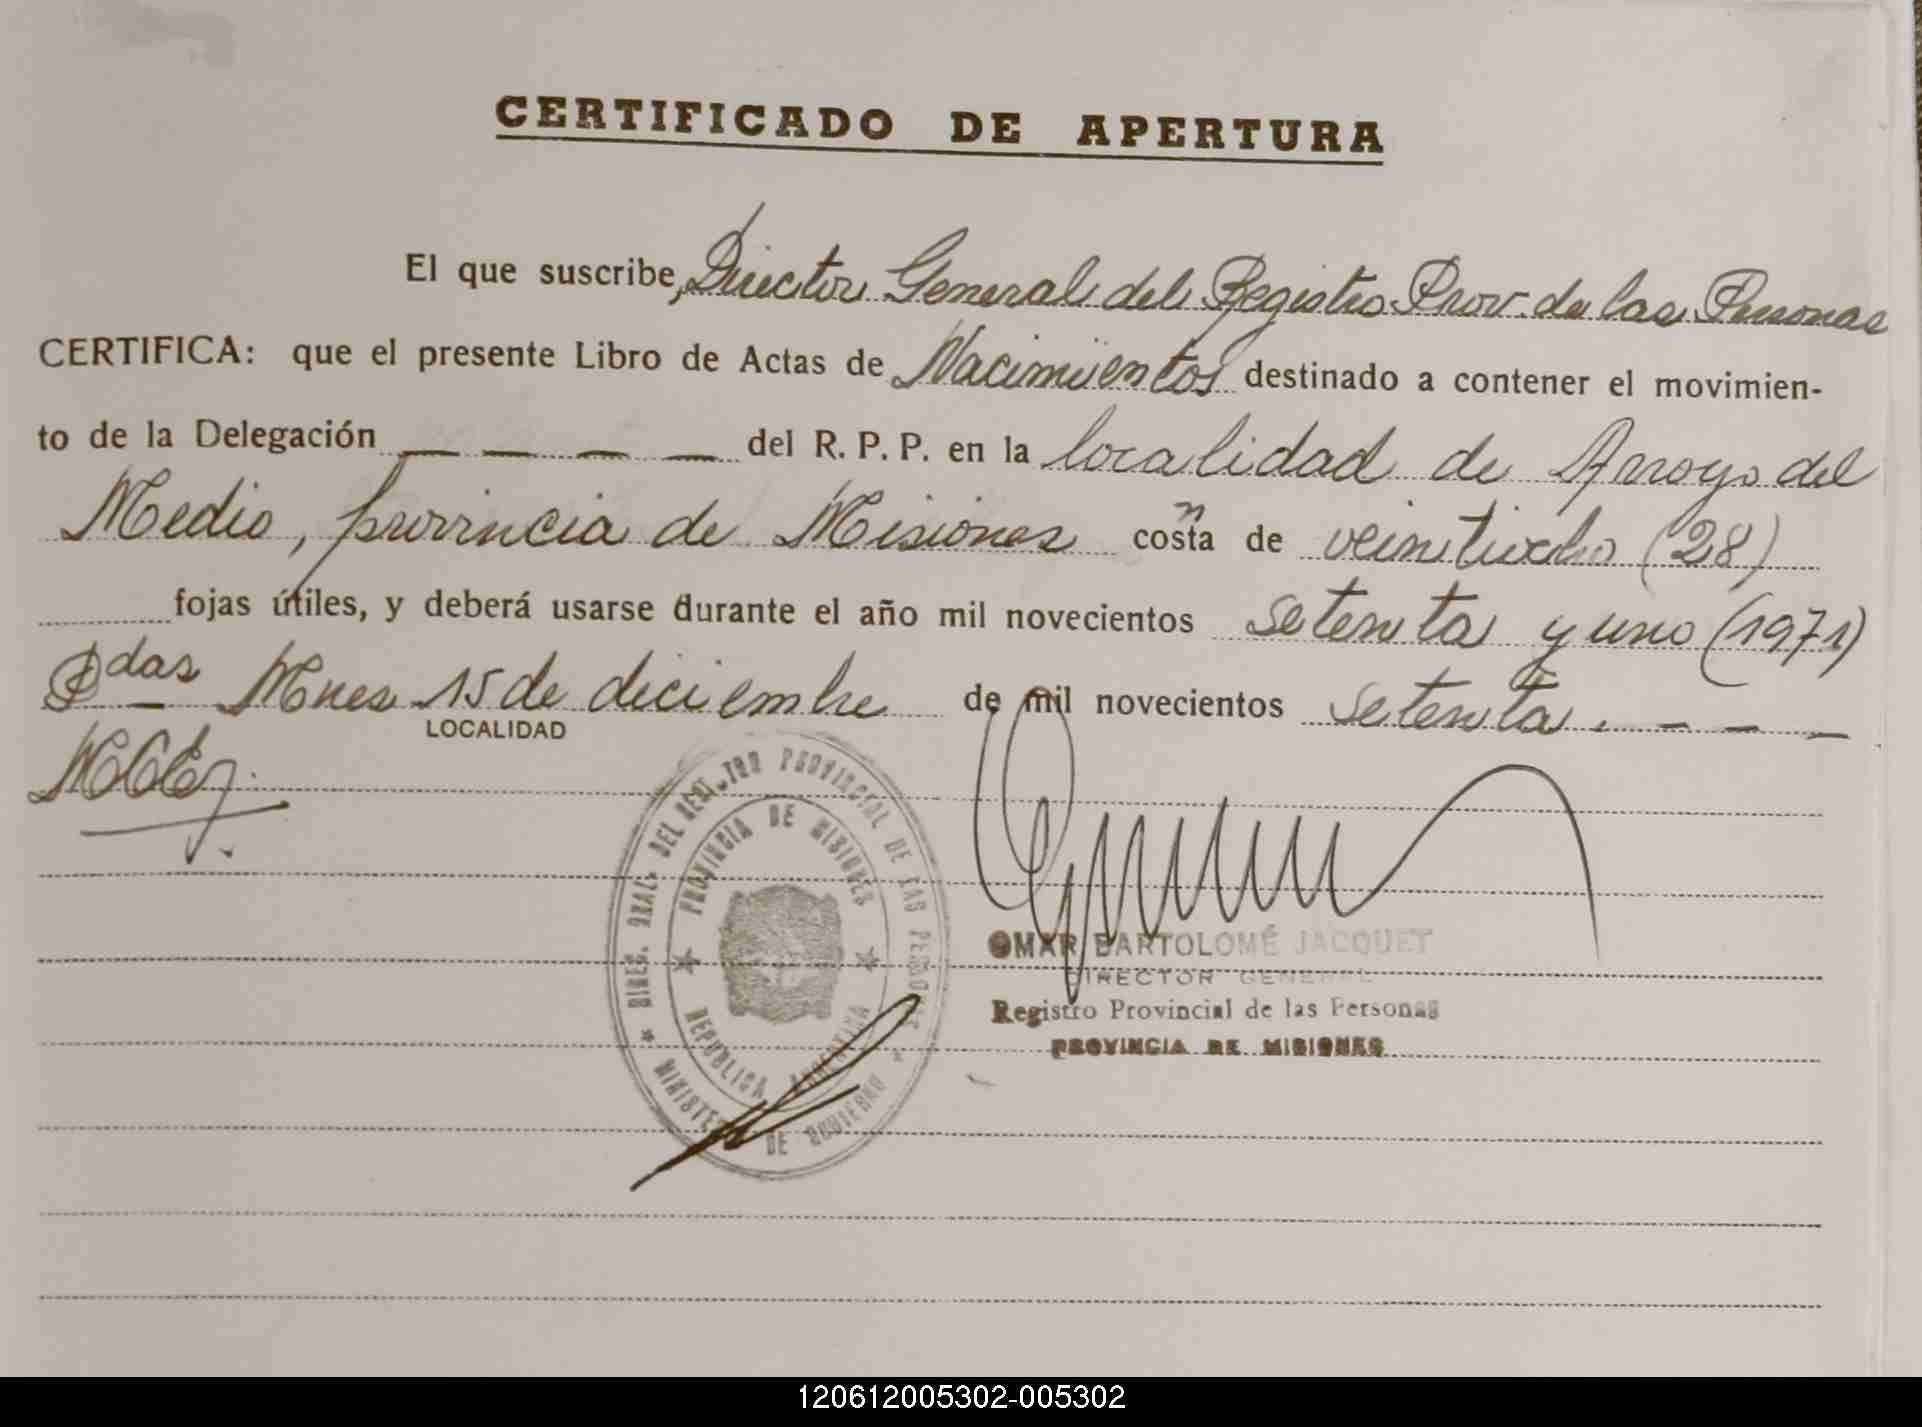 CERTIFICADO DE APERTURA
El que suscribe, Director General del Registro Prov. de las Personas
CERTIFICA: que el presente Libro de Actas de Nacimientos destinado a contener el movimien-
to de la Delegación — — — — del R. P. P. en la localidad de Arroyo del
Medio, provincia de Misiones consta de veintiocho (28)
fojas útiles, y deberá usarse durante el año mil novecientos setenta y uno (1971)
Pdas — Mnes 15 de diciembre de mil novecientos setenta . — — —
LOCALIDAD
DIREC. GRAL. DEL REGISTRO PROVINCIAL DE LAS PERSONAS
PROVINCIA DE MISIONES
REPUBLICA ARGENTINA
MINISTERIO DE GOBIERNO
OMAR BARTOLOMÉ JACQUET
DIRECTOR GENERAL
Registro Provincial de las Personas
PROVINCIA DE MISIONES
120612005302-005302